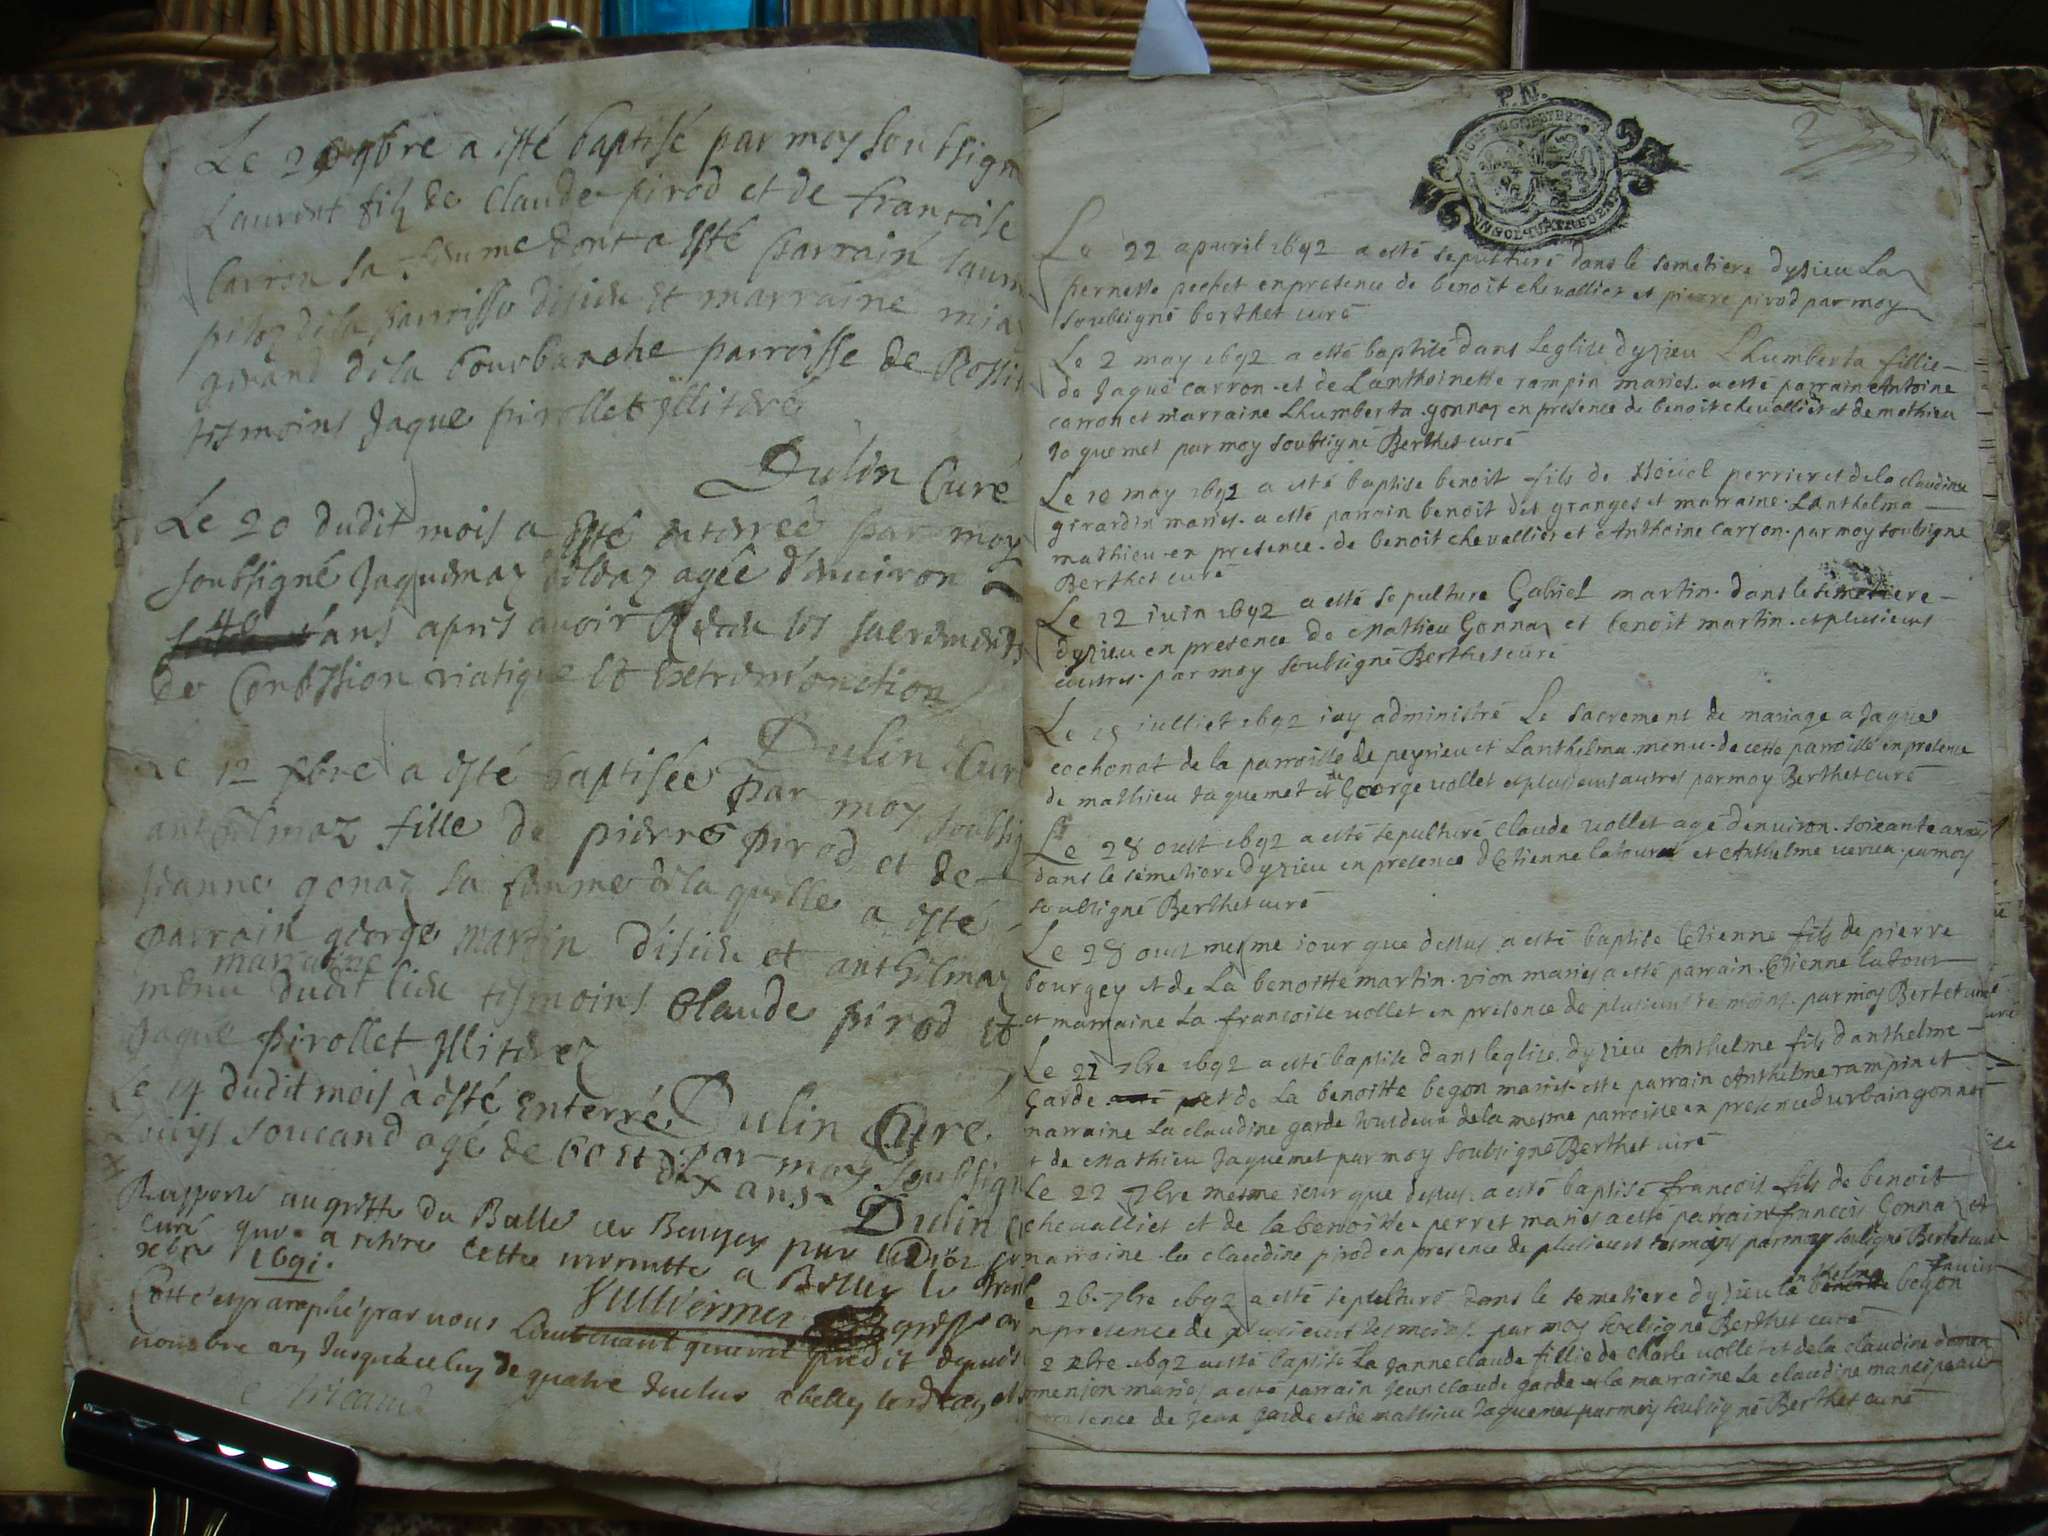 Le 20 9bre a esté baptisé par moy soubsign
Laurent filz de Claude pirod et de francoise
Carron sa femme dont a esté parrain laurn
de la parroisse disieu et marraine mia
girand de la bourbanche parroisse de Rossi
tesmoins Jaque pirollet Illiteré
Dulin Curé
Le 20 dudit mois a esté enterreé par moy
soubsigné Jaquemaz agée d'enuiron
40 ans apres auoir Receu les sacrements
de Confession viatique et extremonction
Dulin Cur
Le 12 xbre a esté baptisée par moy soubsig
anthelmaz fille de pierre pirod et de
jeanne gonaz sa femme de laquelle a esté
parrain george martin disieu et anthelmaz
marraine
menu dudit lieu tesmoins Claude pirod et
Jaque pirollet Illiterez
Dulin Curé
Le 14 dudit mois a esté enterré par moy soubsign
Louys soucand agé de dix ans
Dulin C
au greffe du Balle de Beugey par
curé qui a retiré cette minutte a Belley le
1691.
Vulliermes greff
Cotté et paraphé par nous Lieutenant general depuis
nombre un Jusqua celluy de quatre Inclus a belley
P.N.
2
Le 22 apuril 1692 a esté sepulturé dans le semetiere dyzieu La
pernette pochet en presence de benoit chevallier et pierre pirod par moy
soubsigné berthet curé
Le 2 may 1692 a esté baptisé dans Leglise dyzieu Lhumberta fillie
de Jaque carron et de Lanthoinette rampin maries a esté parrain Antoine
carron et marraine Lhumberta gonnaz en presence de benoit chevallier et de mathieu
Jaquemet par moy soubsigné Berthet curé
Le 10 may 1692 a esté baptisé benoit fils de perrier et de la claudine
girardin maries a esté parrain benoit des granges et marraine Lanthelma
mathieu en presence de benoit chevallier et Anthoine Carron par moy soubsigne
Berthet curé
Le 12 iuin 1692 a esté sepulture Gabriel martin dans le semetiere
dyzieu en presence de Mathieu Gonnaz et benoit martin et plusieurs
autres par moy soubsigné Berthet curé
Le 15 iulliet 1692 iay administré Le sacrement de mariage a Jaque
cochonat de la parroisse de peyrieu et Lanthelma menu de cette parroisse en presence
de mathieu Jaquemet et de George vollet et plusieurs autres par moy Berthet curé
Le 28 oust 1692 a esté sepulturé claude vollet agé denviron soixante années
dans le semetiere dyzieu en presence dEtienne latour et Anthelme par moy
soubsigné Berthet curé
Le 28 oust mesme iour que dessus a esté baptisé Etienne fils de pierre
bourgey et de La benoitte martin vion maries a esté parrain Etienne latour
et marraine La francoise vollet en presence de plusieurs temoins par moy Berthet curé
Le 22 7bre 1692 a esté baptisé dans leglise dyzieu Anthelme fils danthelme
Garde et de La benoitte begon maries esté parrain Anthelme rampin et
marraine La claudine garde tous deux de la mesme parroisse en presence durbain gonnet
et de Mathieu Jaquemet par moy soubsigné Berthet curé
Le 22 7bre mesme iour que dessus a esté baptisé francois fils de benoit
chevallier et de la benoitte perret maries a esté parrain francois Gonnaz et
marraine la claudine pirod en presence de plusieurs tesmoins par moy soubsigné Berthet curé
26 7bre 1692 a esté sepulturé dans le semetiere dyzieu la begon
en presence de plusieurs tesmoins par moy soubsigné Berthet curé
1692 a esté baptisé La Janne claude fillie de Charle vollet et de la claudine
maries a esté parrain Jean claude garde et la marraine La claudine
presence de Jean garde et de mathieu Jaquemet par moy soubsigné Berthet curé